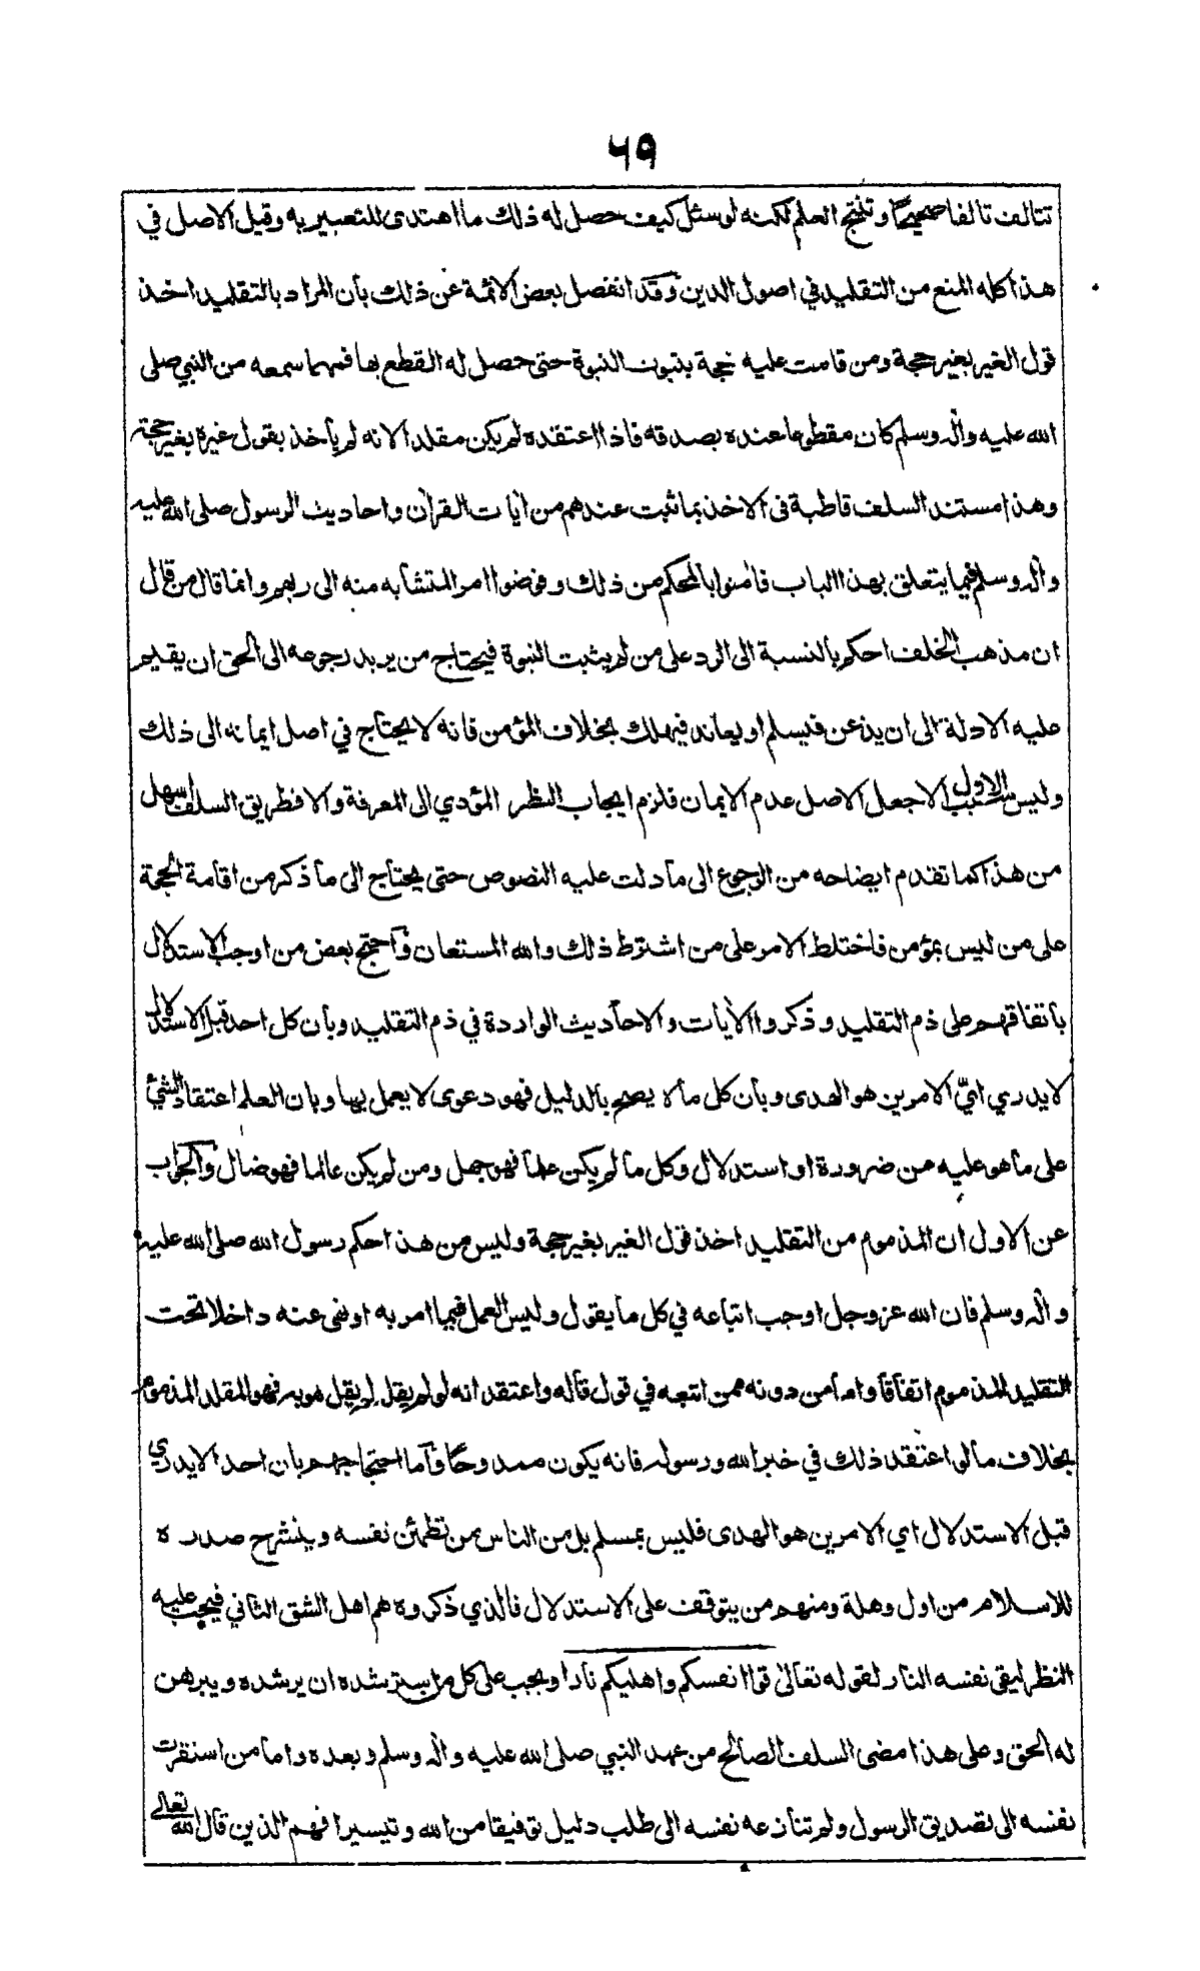 ٦٩
تتالف تالفا صحيحا وتنتج العلم لكنه لو سئل كيف حصل له ذلك ما اهتدى للتعبير به وقيل الاصل في
هذا كله المنع من التقليد في اصول الدين وقد انفصل بعض الائمة عن ذلك بأن المراد بالتقليد اخذ
قول الغير بغير حجة ومن قامت عليه حجة بثبوت النبوة حتى حصل له القطع بها فمهما سمعه من النبي صلى
الله عليه وآله وسلم كان مقطوعا عنده بصدقه فاذا اعتقده لم يكن مقلدا لانه لم يأخذ بقول غيره بغير حجة
وهذا مستند السلف قاطبة فى الاخذ بما ثبت عندهم من أيات القرأن واحاديث الرسول صلى الله عليه
وآله وسلم فيما يتعلق بهذا الباب فأمنوا بالمحكم من ذلك وفوضوا امر المتشابه منه الى ربهم وانما قال من قال
ان مذهب الخلف احكم بالنسبة الى الرد على من لم يثبت النبوة فيحتاج من يريد رجوعه الى الحق ان يقيم
عليه الادلة الى ان يذعن فيسلم او يعاند فيهلك بخلاف المؤمن فانه لا يحتاج في اصل ايمانه الى ذلك
وليس سبب الاول الا جعل الاصل عدم الايمان فلزم ايجاب النظر المؤدي الى المعرفة والا فطريق السلف اسهل
من هذا كما تقدم ايضاحه من الرجوع الى ما دلت عليه النصوص حتى يحتاج الى ما ذكر من اقامة الحجة
على من ليس بمؤمن فاختلط الامر على من اشترط ذلك والله المستعان وأحتج بعض من اوجب الاستدلال
بأتفاقهم على ذم التقليد وذكروا الأيات والاحاديث الواردة في ذم التقليد وبأن كل احد قبل الاستدلال
لا يدري ايّ الامرين هو الهدى وبأن كل ما لا يصح بالدليل فهو دعوى لا يعمل بها وبان العلم اعتقاد الشئ
على ما هو عليه من ضرورة او استدلال وكل ما لم يكن علما فهو جهل ومن لم يكن عالما فهو ضال وألجواب
عن الاول ان المذموم من التقليد اخذ قول الغير بغير حجة وليس من هذا حكم رسول الله صلى الله عليه
وآله وسلم فان الله عز وجل اوجب اتباعه في كل ما يقول وليس العمل فيما امر به او نهى عنه داخلا تحت
التقليد المذموم اتفاقا واما من دونه ممن اتبعه في قول قاله واعتقد انه لو لم يقله لم يقل هو به فهو المقلد المذموم
بخلاف ما لو اعتقد ذلك في خبر الله ورسوله فانه يكون ممدوحا وأما احتجاجهم بان احدا لا يدري
قبل الاستدلال اي الامرين هو الهدى فليس بمسلم بل من الناس من تطمئن نفسه وينشرح صدره
للاسلام من اول وهلة ومنهم من يتوقف على الاستدلال فالذي ذكروه هم اهل الشق الثاني فيجب عليه
النظر ليقى نفسه النار لقوله تعالى قوا انفسكم واهليكم نارا ويجب على كل من استرشده ان يرشده ويبرهن
له الحق وعلى هذا مضى السلف الصالح من عهد النبي صلى الله عليه وآله وسلم وبعده واما من استقرت
نفسه الى تصديق الرسول ولم تنازعه نفسه الى طلب دليل توفيقا من الله وتيسيرا فهم الذين قال الله تعالى